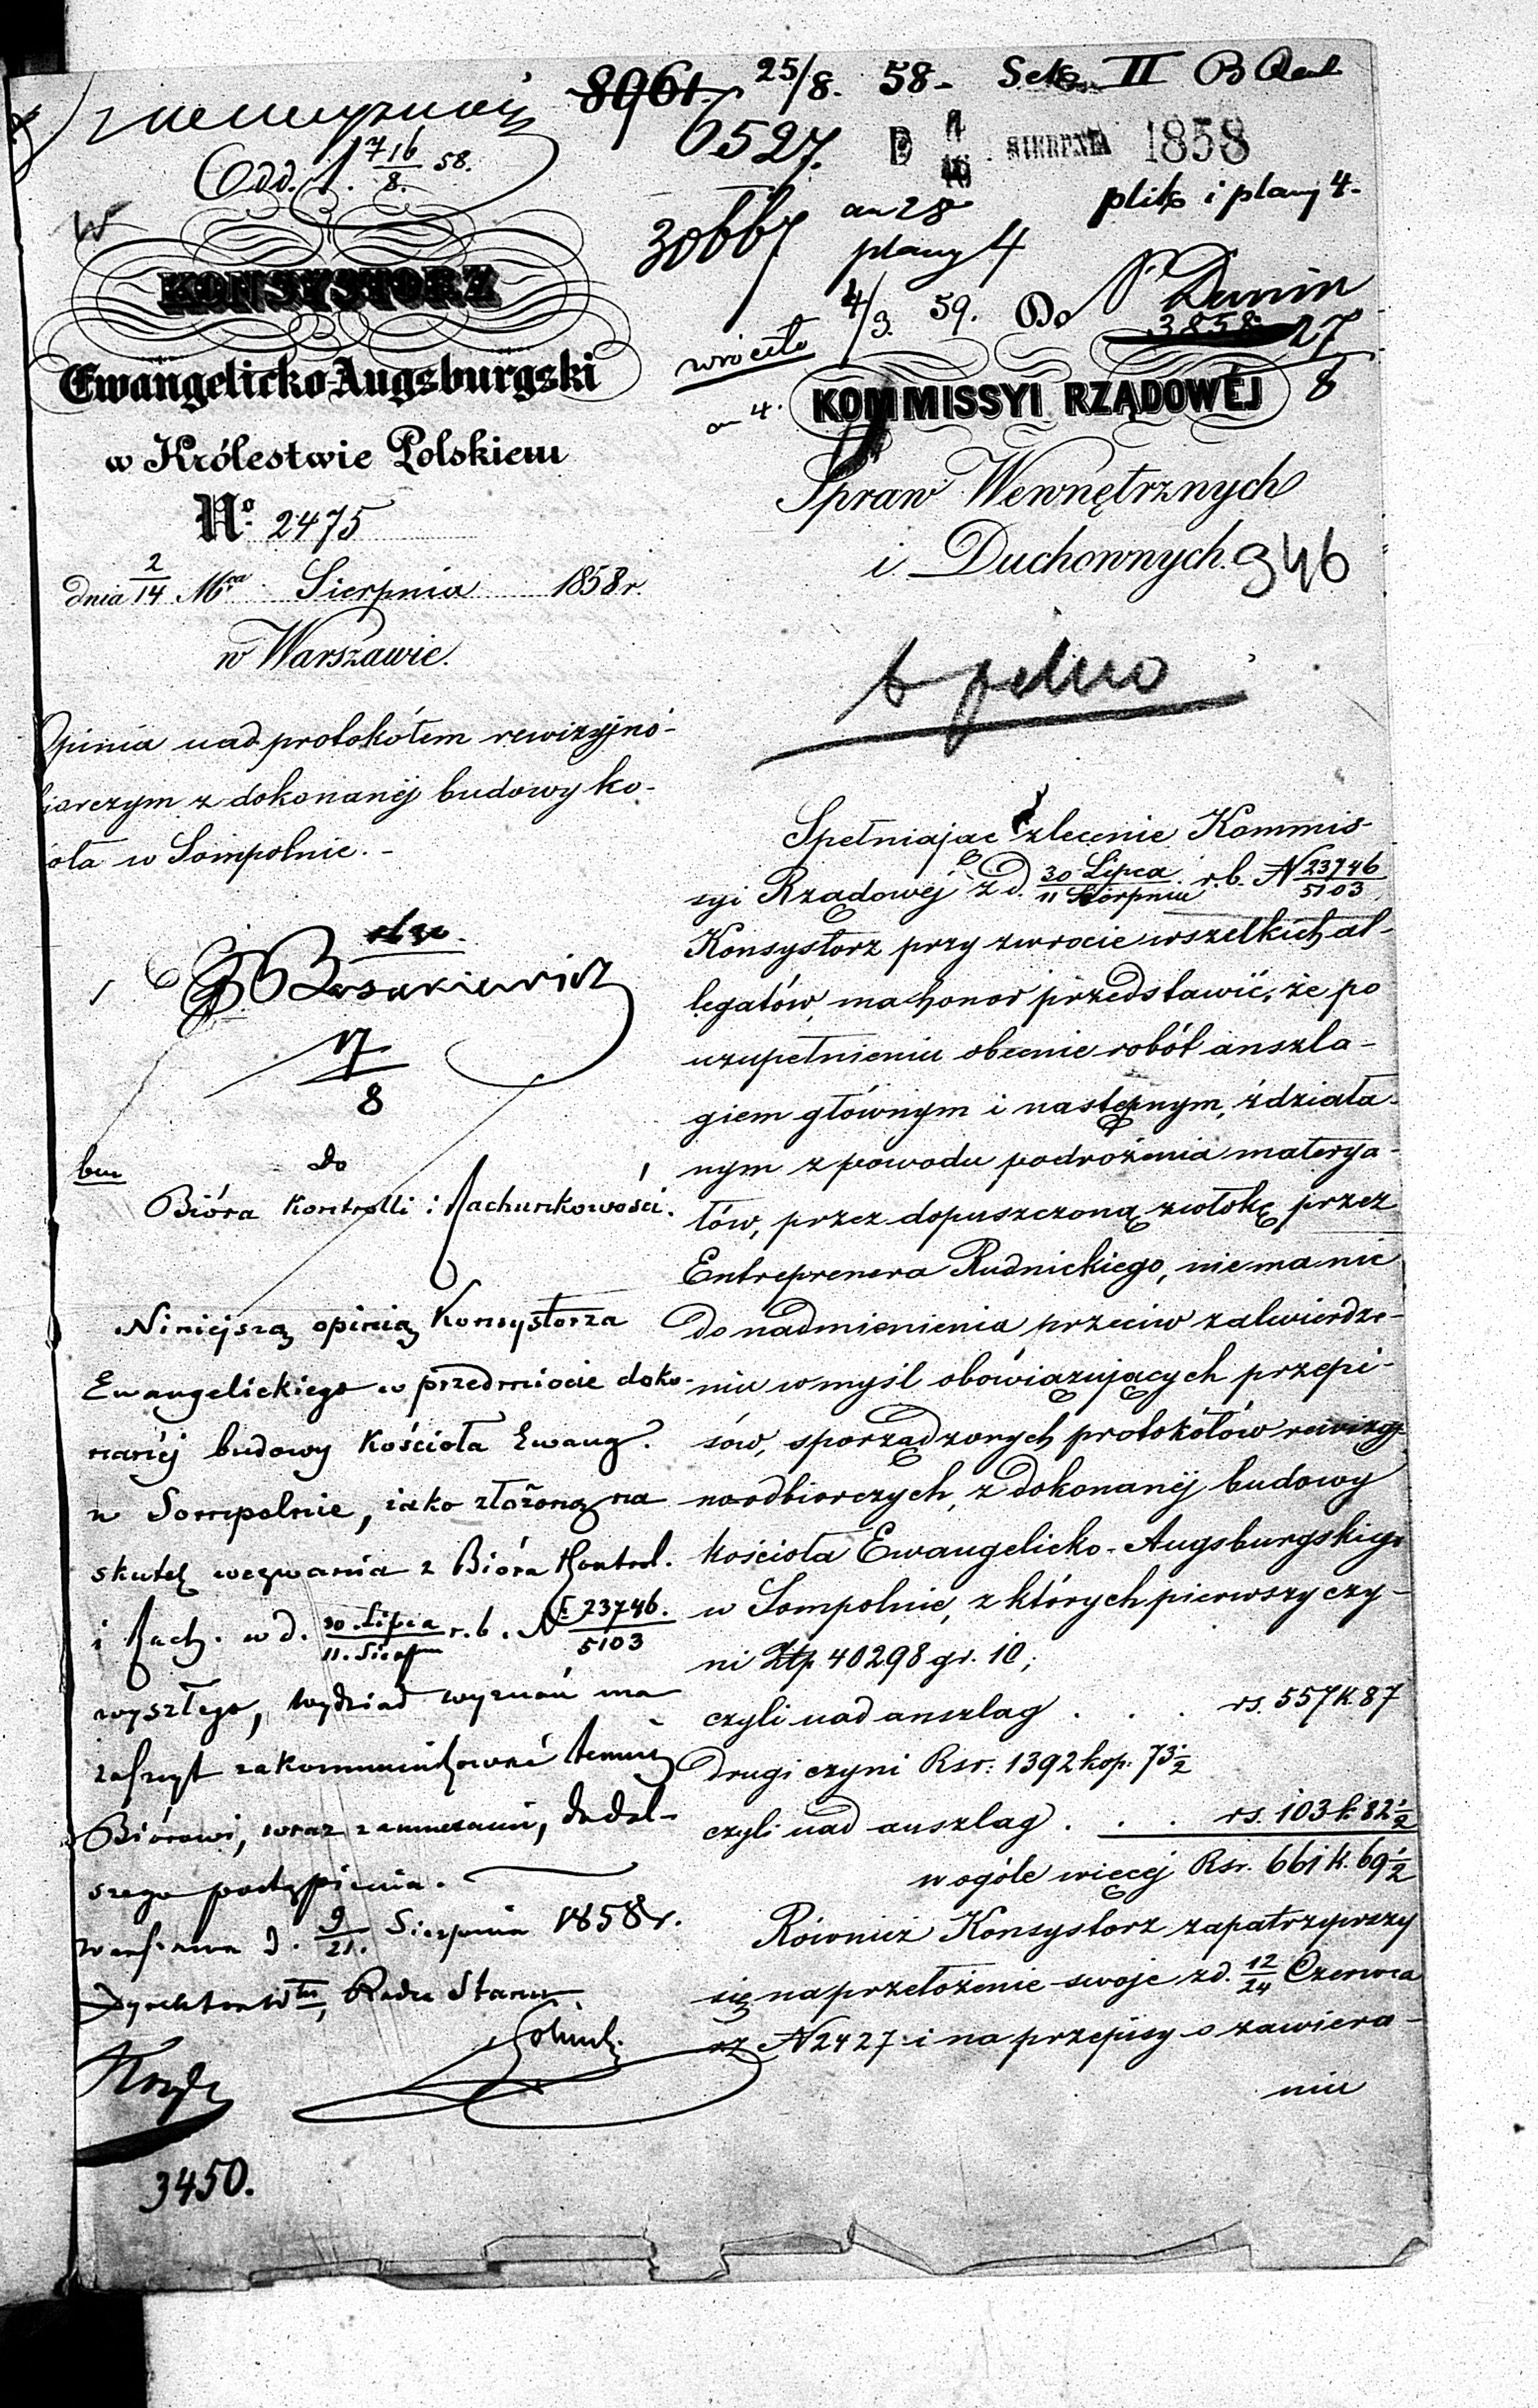 8961. 25/8. 58. Sek. II
6527. D 4/16 SIERPNIA 1858
Odd. 1. 716/8. 58.
30667 an 28 plik i plany 4.
plany 4
4/3. 59. Do P. Dunin
3858 27/8
wróciło
an 4.
KONSYSTORZ
Ewangelicko-Augsburgski
w Królestwie Polskiem
No. 2475
dnia 2/14 Mca Sierpnia 1858 r.
w Warszawie.
Opinia nad protokółem rewizyjno-
biorczym z dokonanéj budowy ko-
ioła w Sompolnie. -
17/8
bu
do
Bióra Kontrolli i Rachunkowości.
Niniejszą opinią Konsystorza
Ewangelickiego w przedmiocie doko-
nanéj budowy Kościoła Ewang.
w Sompolnie, iako złożoną na
skutek wezwania z Bióra Kontrol.
i Rach. w d. 30 Lipca/11. Sierp r. b. N 23746./5103
wyszłego, Wydział wyznań ma
zaszczyt zakommunikować temuż
Biórowi, wraz z annexami, do dal-
szego postąpienia.
Warszawa d. 9/21. Sierpnia 1858 r.
Dyrektor Włu, Radca Stanu
3450.
KOMMISSYI RZĄDOWÉJ
Spraw Wewnętrznych
i Duchownych.
346
Spełniając zlecenie Kommis-
syi Rządowéj z d. 30 Lipca/11 Sierpnia r. b. N 23746/5103
Konsystorz przy zwrocie wszelkich al-
legatów, ma honor przedstawić, że po
uzupełnieniu obecnie robót anszla-
giem głównym i następnym, zdziała-
nym z powodu podrożenia materya-
łów, przez dopuszczoną zwłokę przez
Entreprenera Rudnickiego, nie ma nic
do nadmienienia przeciw zatwierdze-
niu w myśl obowiązujących przepi-
sów, sporządzonych protokółów rewizyj-
noodbiorczych, z dokonanéj budowy
kościoła Ewangelicko-Augsburgskiego
w Sompolnie, z których pierwszy czy-
ni Złp. 40298 gr. 10;
czyli nad anszlag . . . rs. 557 k. 87
drugi czyni Rsr: 1392 kop. 73½
czyli nad anszlag . . . rs. 103 k. 82½
w ogóle więcéj Rsr. 661 k. 69½
Również Konsystorz zapatrzywszy
się na przełożenie swoje z d. 12/24 Czerwca
N 2427 i na przepisy o zawiera-
niu